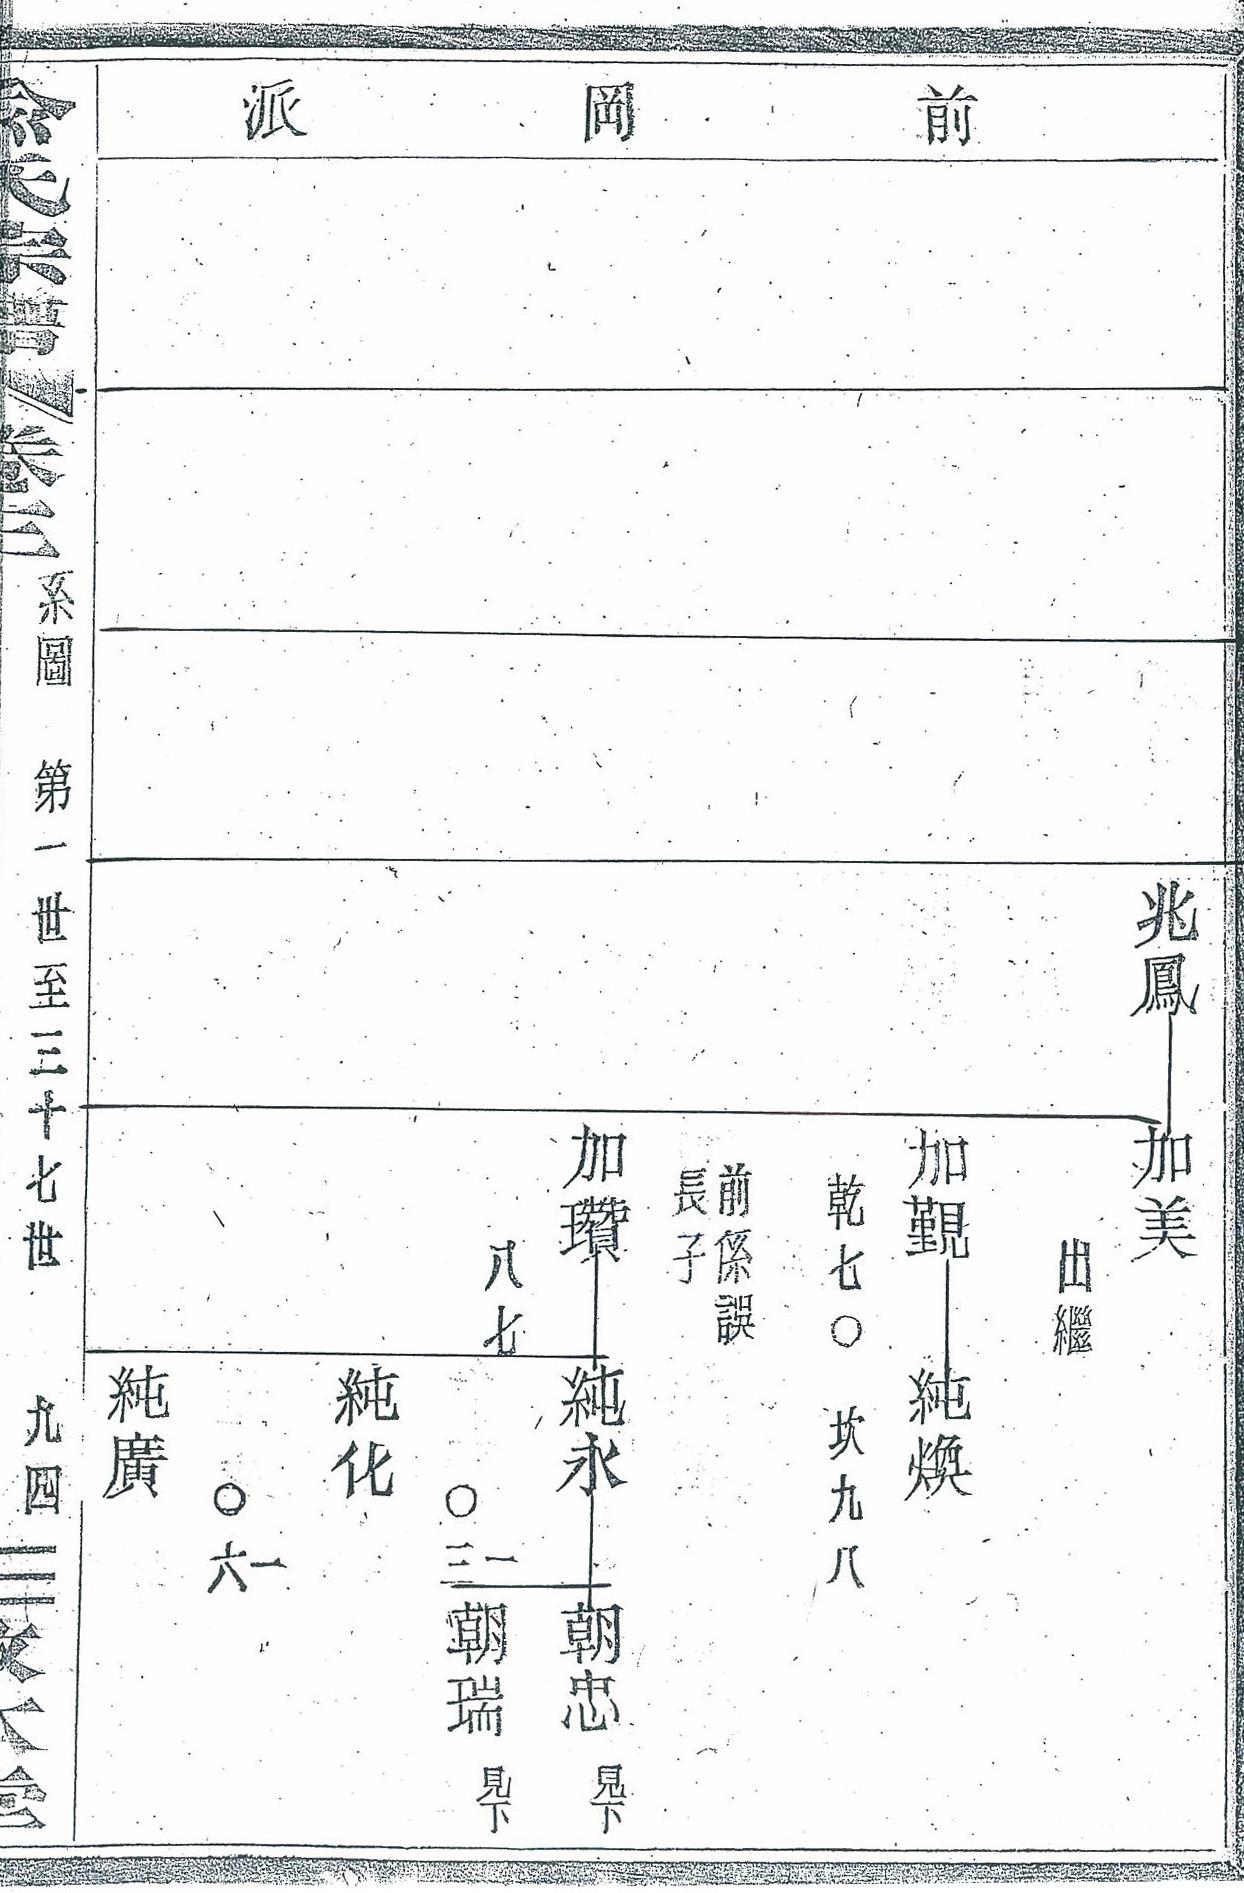 前岡派
兆鳳
加美
出繼
加觐
乾七〇
純煥
坎九八
前係誤
長子
加瓚
八七
純永
朝忠
見下
〇三一
朝瑞
見下
純化
〇六一
純廣
氏宗譜 卷三
系圖 第一世至三十七世 九四